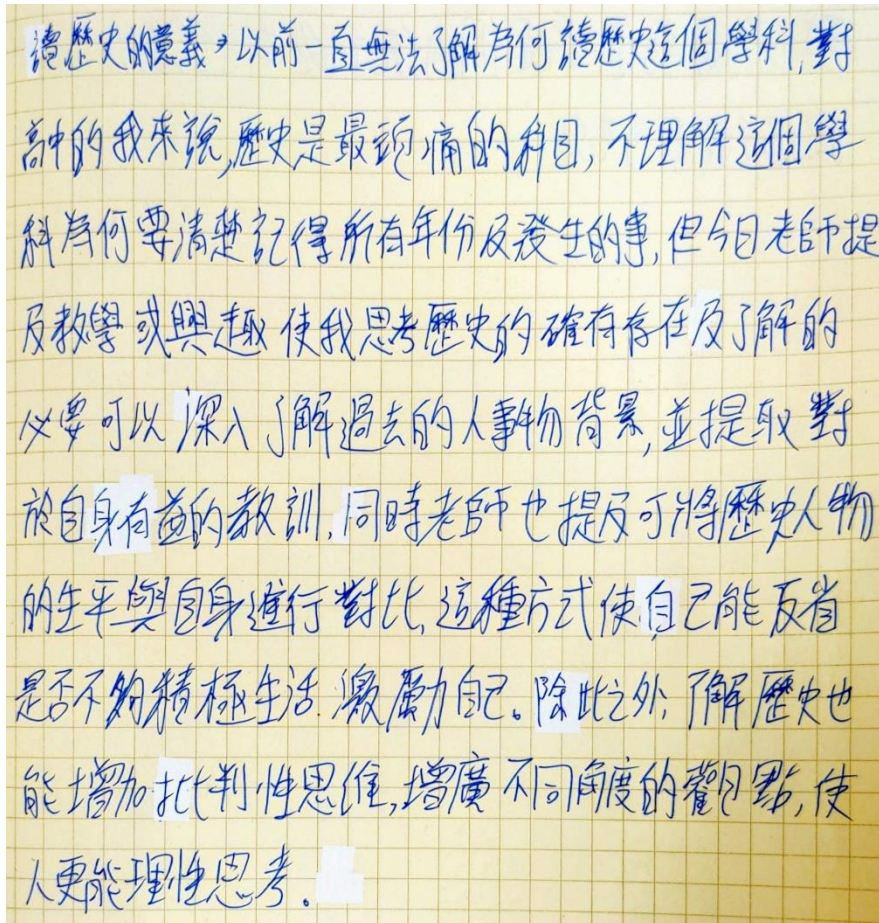 讀歷史的意義，以前一直無法了解為何讀歷史這個學科，對
高中的我來說，歷史是最頭痛的科目，不理解這個學
科為何要清楚記得所有年份及發生的事，但今日老師提
及教學或興趣使我思考歷史的確有存在及了解的
必要可以深入了解過去的人事物背景，並提取對
於自身有益的教訓，同時老師也提及可將歷史人物
的生平與自身進行對比，這種方式使自己能反省
是否不夠積極生活，激勵自己。除此之外，了解歷史也
能增加批判性思維，增廣不同角度的觀點，使
人更能理性思考。